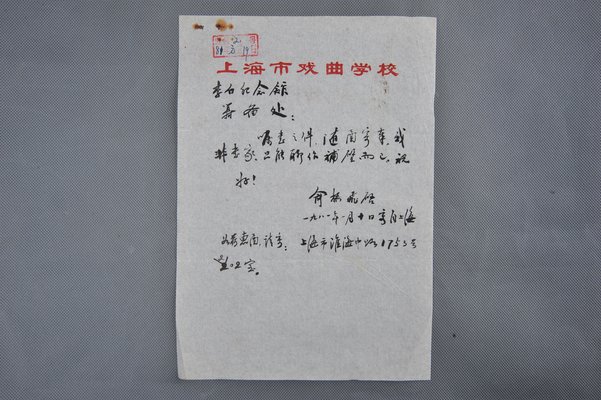 上海市戏曲学校
李白纪念馆
筹备处：
嘱书之件，随函寄奉，我
非书家，只能聊作补壁而已，祝
好！
俞振飞启
一九八一年一月十日寄自上海
如蒙惠函，请寄：上海市淮海中路1753号
室。